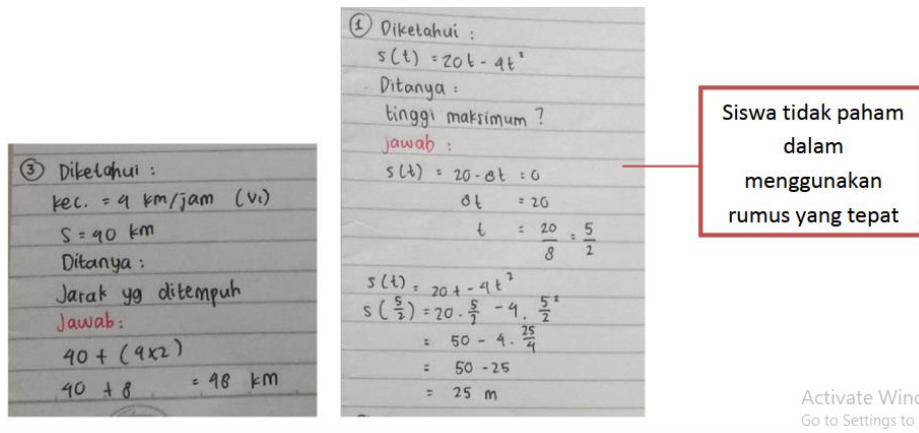 ③ Diketahui :
kec. = 4 km/jam (V₁)
S = 40 km
Ditanya :
Jarak yg ditempuh
Jawab :
40 + (4x2)
40 + 8 = 48 km
① Diketahui :
s(t) = 20t - 4t²
Ditanya :
tinggi maksimum ?
jawab :
s(t) = 20 - 8t = 0
8t = 20
t = 20/8 = 5/2
s(t) = 20t - 4t²
s(5/2) = 20 . 5/2 - 4 . 5/2²
= 50 - 4 . 25/4
= 50 - 25
= 25 m
Siswa tidak paham
dalam
menggunakan
rumus yang tepat
Activate Win
Go to Settings to